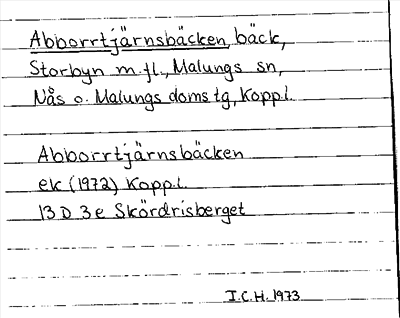 Abborrtjärnsbäcken, bäck,
Storbyn m.fl., Malungs sn,
Nås o. Malungs domstg, Kopp.l.
Abborrtjärnsbäcken
ek (1972) Kopp.l.
13 D 3e Skördrisberget
I.C.H. 1973